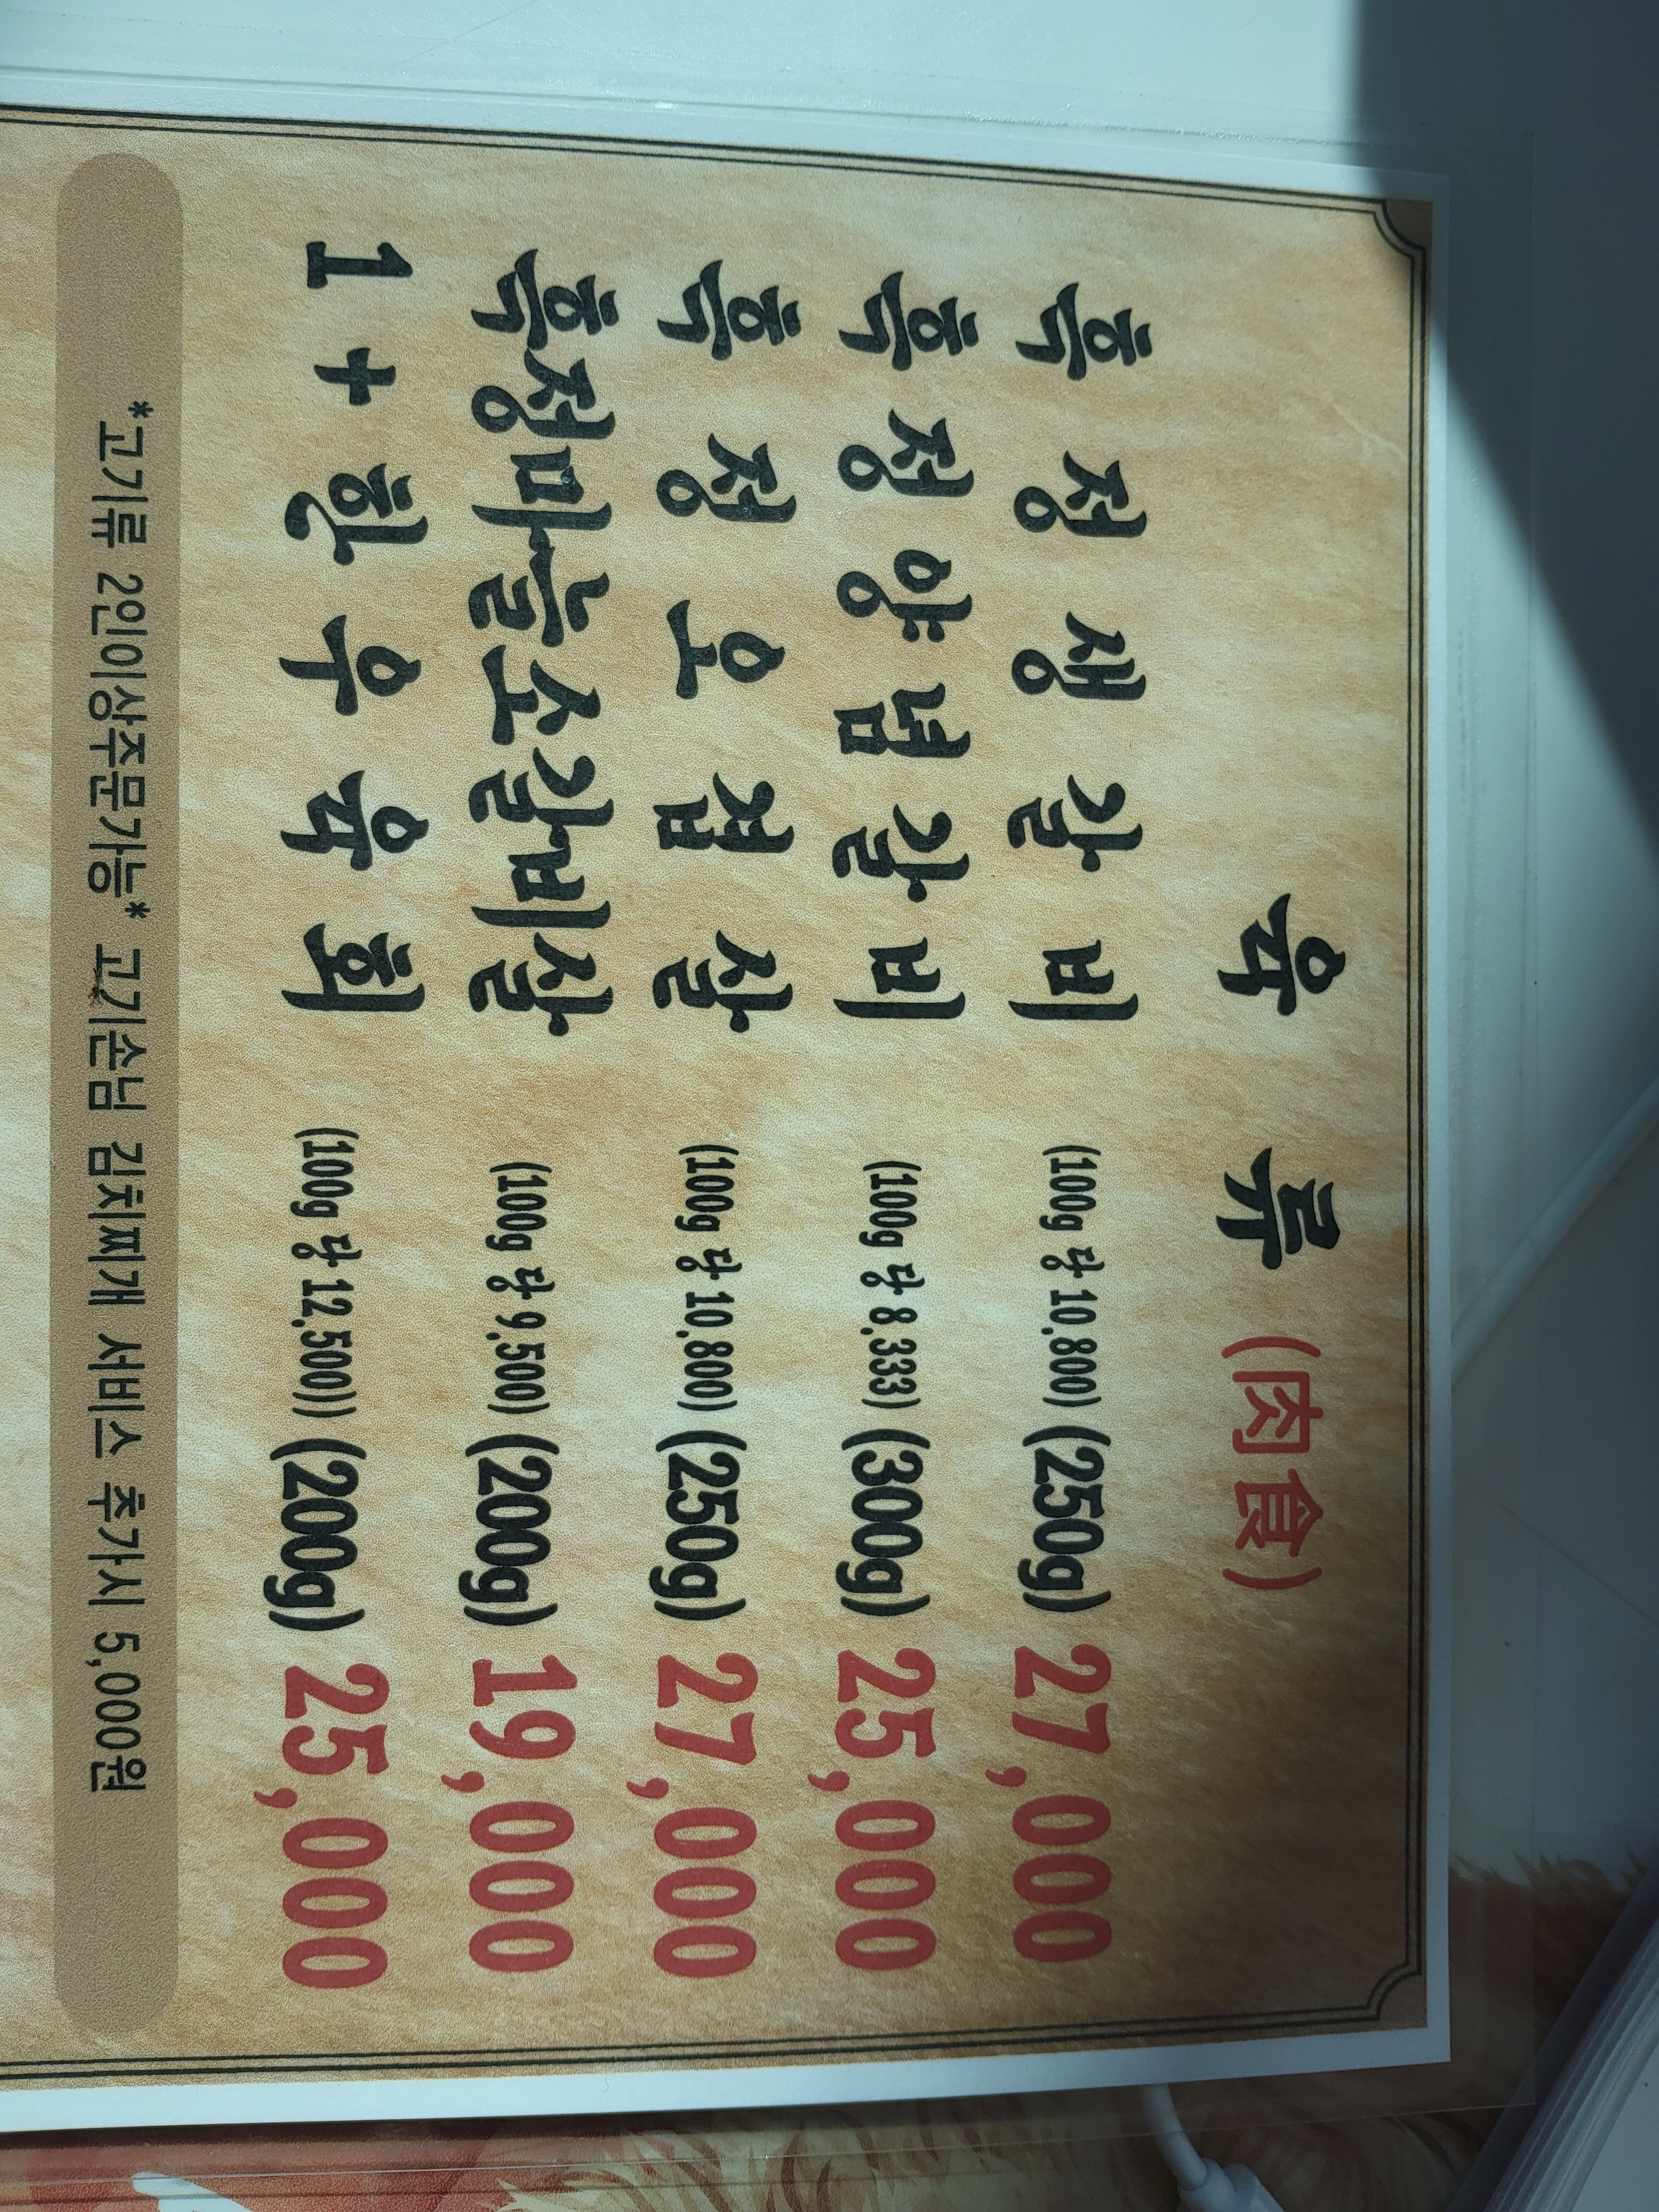 육 류 (肉食)
흑 정 생 갈 비 (100g 당 10,800) (250g) 27,000
흑 정 양 념 갈 비 (100g 당 8,333) (300g) 25,000
흑 정 오 겹 살 (100g 당 10,800) (250g) 27,000
흑정마늘소갈비살 (100g 당 9,500) (200g) 19,000
1 + 한 우 육 회 (100g 당 12,500)) (200g) 25,000
*고기류 2인이상주문가능* 고기손님 김치찌개 서비스 추가시 5,000원